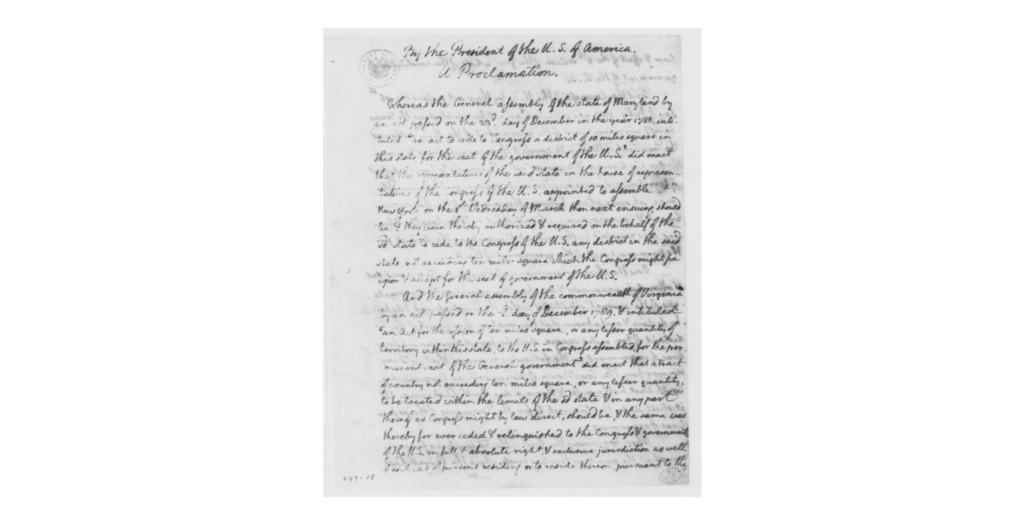 By the President of the U. S. of America.
A Proclamation.
Whereas the General assembly of the state of Maryland by
an act passed on the 23d. day of December in the year 1788. inti-
tuled "an act to cede to Congress a district of 10 miles square in
this state for the seat of the government of the U. S." did enact
that the representatives of the said state in the house of represen-
tatives of the Congress of the U. S. appointed to assemble
New York on the Wednesday of March then next ensuing, should
be & they were thereby authorized & required on the behalf of the
sd state to cede to the Congress of the U. S. any district in the said
state not exceeding ten miles square which the Congress might fix
upon & accept for the seat of government of the U. S.
And the general assembly of the commonwealth of Virginia
by an act passed on the 3d. day of December 1789. & intituled
"an Act for the cession of ten miles square, or any lesser quantity of
territory within this state, to the U. S. in Congress assembled, for the per-
manent seat of the General government" did enact that a tract
of country not exceeding ten miles square, or any lesser quantity,
to be located within the limits of the sd state & in any part
thereof as Congress might by law direct, should be, & the same was
thereby for ever ceded & relinquished to the Congress & government
of the U. S. in full & absolute right, & exclusive jurisdiction as well
of soil, as of persons residing or to reside thereon, pursuant to the
249-15